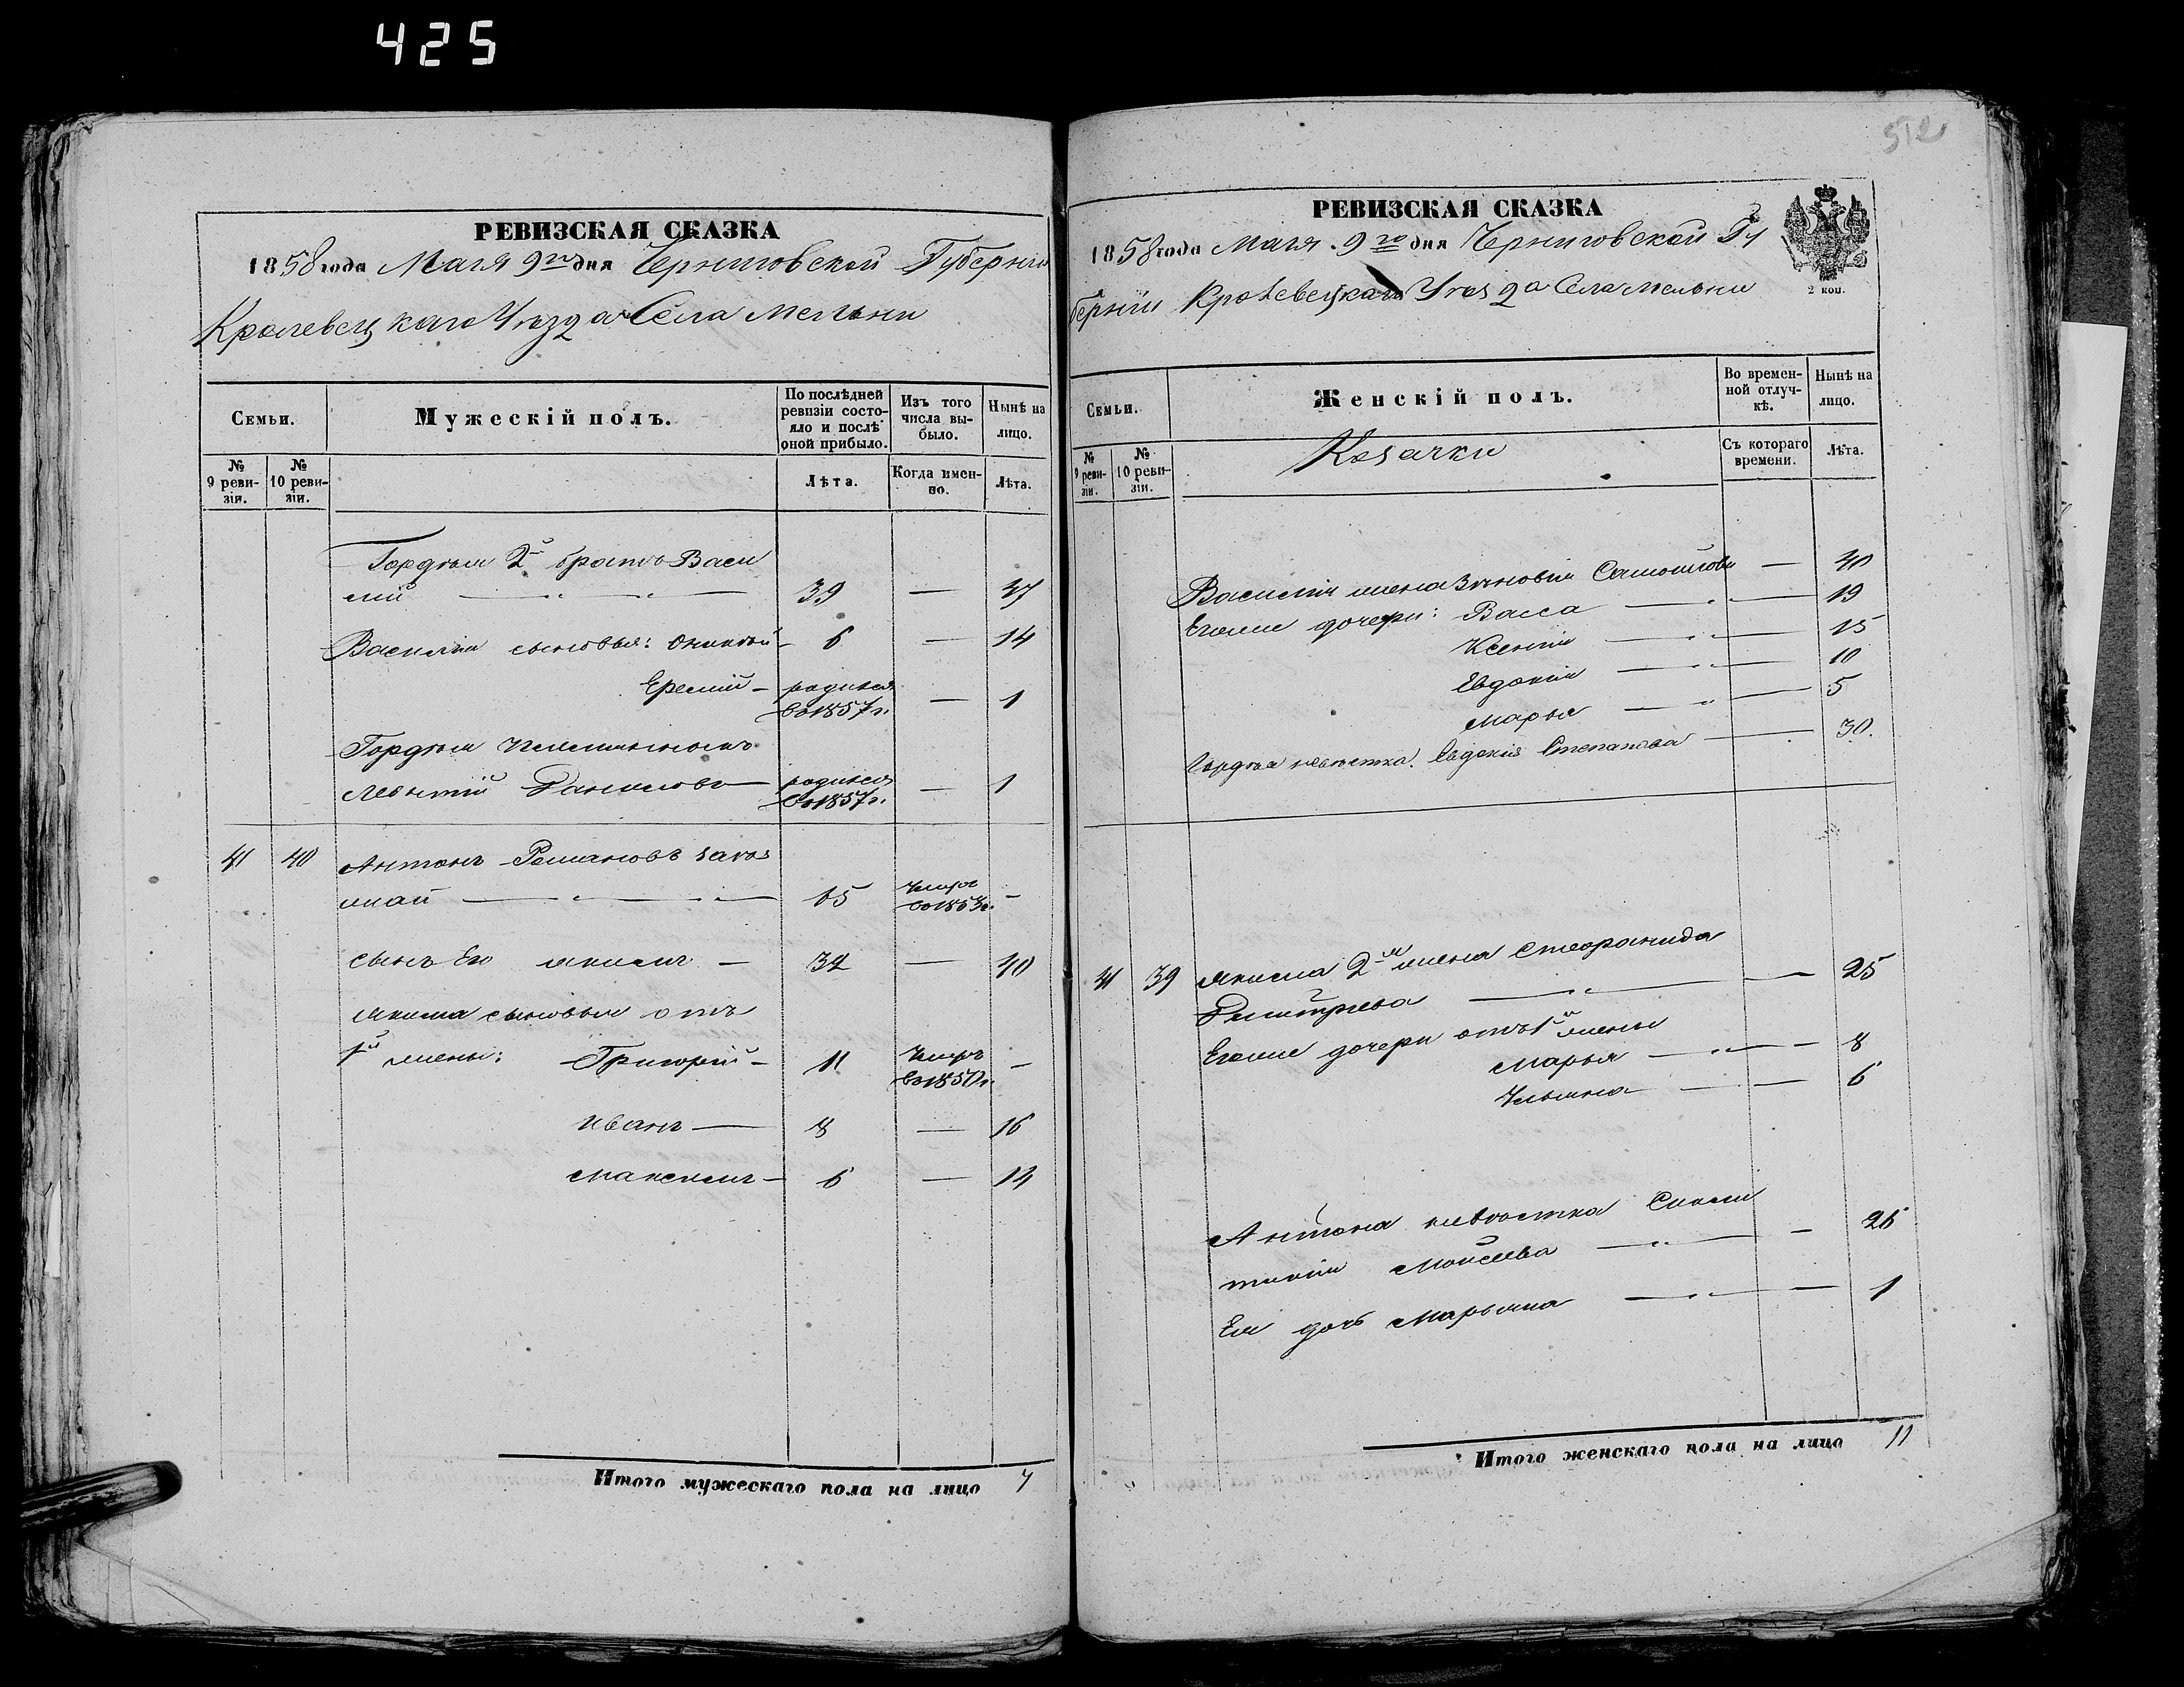 425
РЕВИЗСКАЯ СКАЗКА
1858 года Мая 9го дня Черниговской Губерніи
Кролевецкаго Уѣзда Села Мельни
Семьи.
Мужескій полъ.
По послѣдней ревизіи состояло и послѣ оной прибыло.
Изъ того числа выбыло.
Нынѣ на лицо.
№ 9 ревизіи.
№ 10 ревизіи.
Лѣта.
Когда именно.
Лѣта.
Гордѣя 2й братъ Васи
лій 39 — 47
Василія сыновья: — 6 — 14
Еремій — родился
в 1857 г. — 1
Гордѣя племянникъ
Леонтій Даниловъ родился
в 1857 г. — 1
41 40 Антонъ Романовъ
65 Умеръ в 1853 г. —
Сынъ Его Якимъ — 32 — 40
Якима сыновья отъ
1й жены: Григорій — 11 Умеръ
в 1850 г. —
Иванъ — 8 — 16
Максимъ — 6 — 14
Итого мужескаго пола на лицо 7
512
РЕВИЗСКАЯ СКАЗКА
1858 года Мая 9го дня Черниговской Гу
берніи Кролевецкаго Уѣзда Села Мельни
2 коп.
Семьи.
Женскій полъ.
Во временной отлучкѣ.
Нынѣ на лицо.
№ 9 ревизіи.
№ 10 ревизіи.
Козачки
Съ котораго времени.
Лѣта.
Василія жена Зѣновія Самойлова — 40
Егоже дочери: Васса — 19
Ксенія — 15
Евдокія — 10
Марья — 5
Гордѣя невѣстка Евдокія Степанова — 30.
41 39 Якима 2я жена Стефанида
Дмитрева — 25
Егоже дочери отъ 1й жены
Марья — 8
Ульяна — 6
Антона невѣстка
Моисеева — 26
Ея дочь Марьяна — 1
Итого женскаго пола на лицо 11